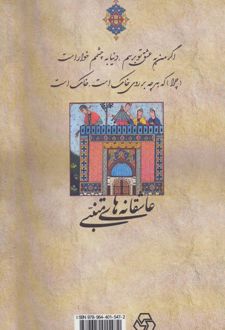 اگر مسند عشق تو بر رسم، دنیا به چشم خوار است
چرا که هر چه بر روی خاک است، خاک است
عاشقانه های متنبّی
ISBN 978-964-401-547-2